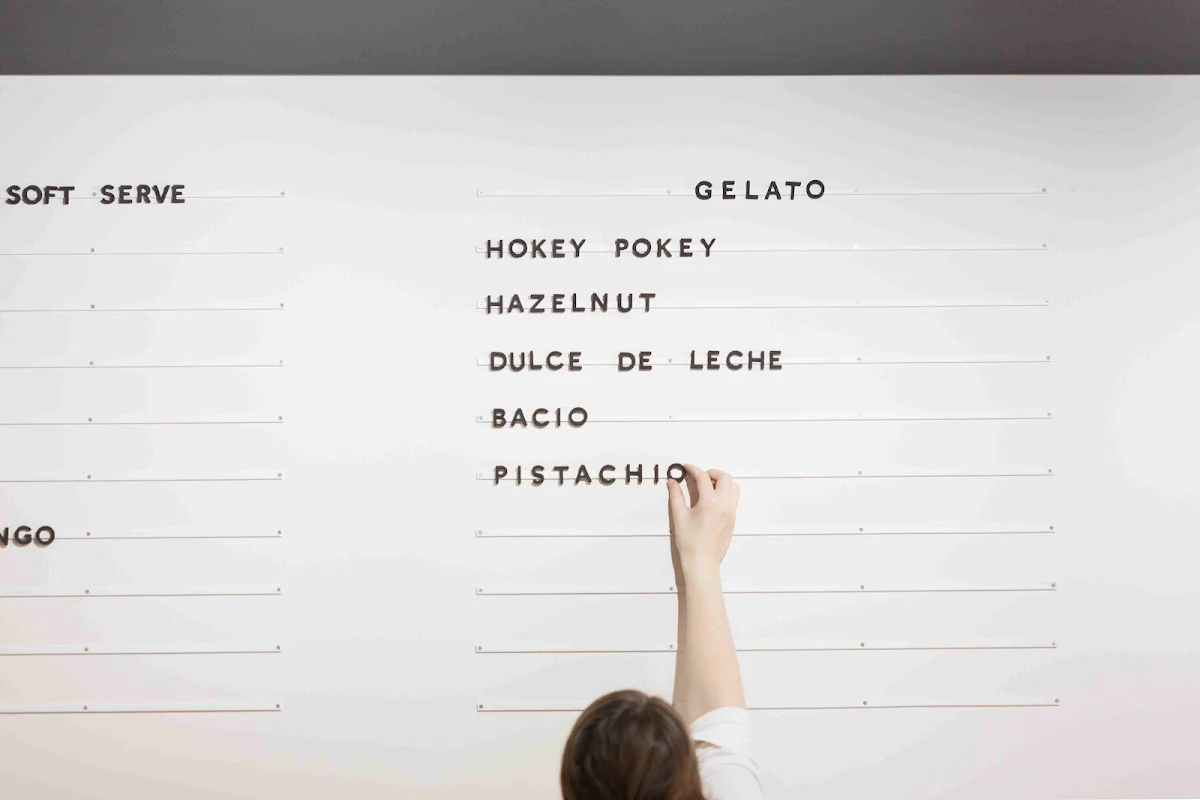 SOFT SERVE
NGO
GELATO
HOKEY POKEY
HAZELNUT
DULCE DE LECHE
BACIO
PISTACHIO